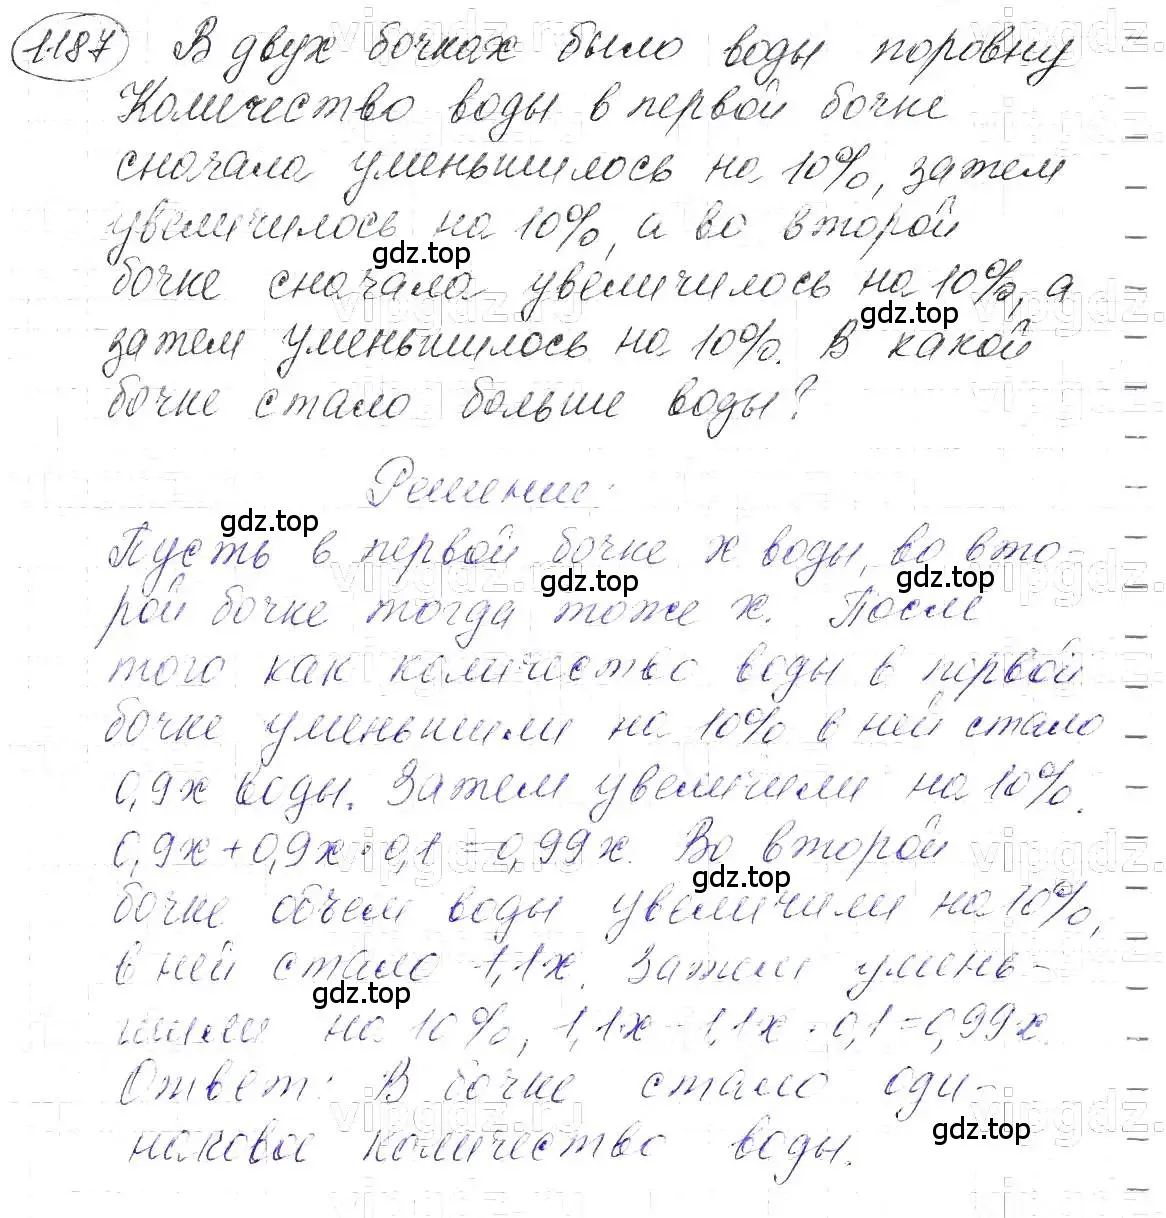 1187 В двух бочках было воды поровну
Количество воды в первой бочке
сначала уменьшилось на 10%, затем
увеличилось на 10%, а во второй
бочке сначала увеличилось на 10%, а
затем уменьшилось на 10%. В какой
бочке стало больше воды?
Решение:
Пусть в первой бочке x воды, во вто-
рой бочке тогда тоже x. После
того как количество воды в первой
бочке уменьшили на 10% в ней стало
0,9x воды. Затем увеличили на 10%.
0,9x + 0,9x · 0,1 = 0,99x. Во второй
бочке объем воды увеличили на 10%,
в ней стало 1,1x. Затем умень-
шили на 10%, 1,1x - 1,1x · 0,1 = 0,99x.
Ответ: В бочке стало оди-
наковое количество воды.
gdz.top
gdz.top
gdz.top
gdz.top
gdz.top
gdz.top
gdz.top
gdz.top